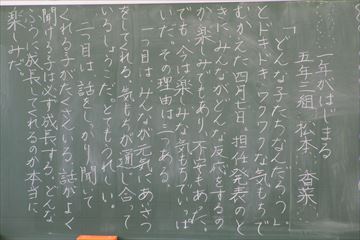 一年がはじまる
五年三組 松本 香菜
「どんな子たちなんだろう」
とドキドキ・ワクワクな気もちで
むかえた四月七日。担任発表のと
きにみんながどんな反応をするの
か楽しみでもあり、不安でもあった。
でも、今は楽しみな気もちでいっぱ
いだ。その理由は三つある。
一つ目は、みんなが元気にあいさつ
をしてくれる。気もちが通じ合って
いるしょうこだ。とてもうれしい。
二つ目は、話をしっかり聞いて
くれる子がたくさんいる。話がよく
聞ける子は必ず成長する。どんな
ふうに成長してくれるのか本当に
楽しみだ。